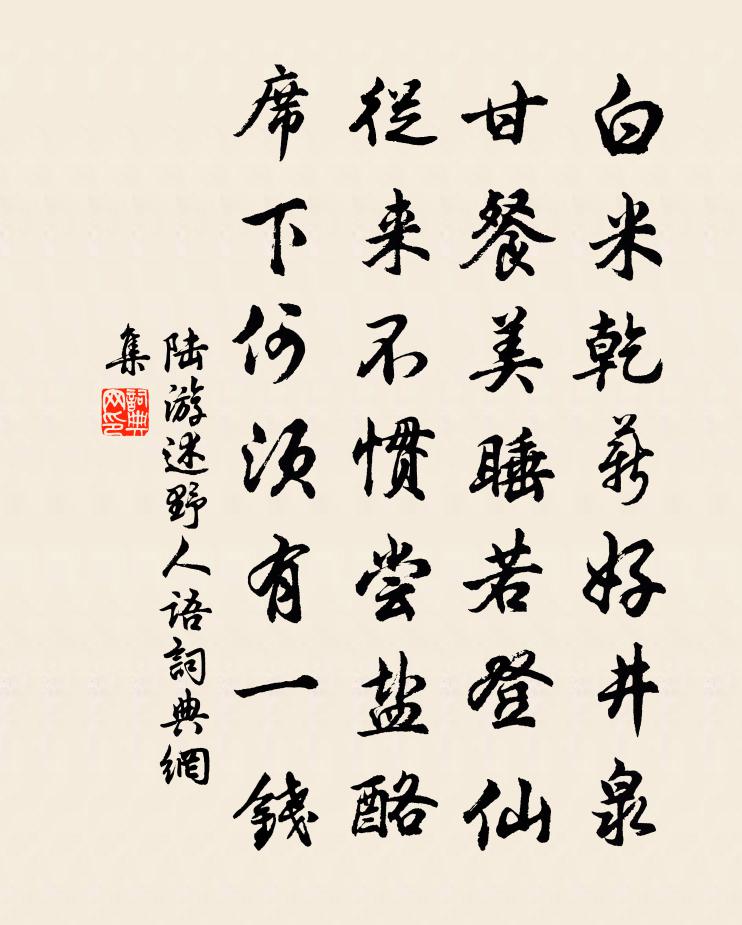 白米乾薪好井泉
甘餐美睡若登仙
從来不慣尝盐酪
席下何须有一錢
陆游述野人语詞典網
集
詞典
网印